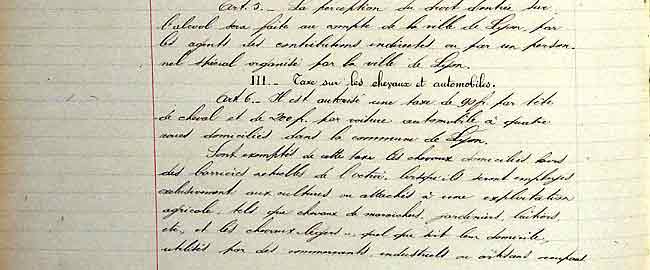 Art. 5 _ La perception du droit d'entrée sur
l'alcool sera faite au compte de la ville de Lyon, par
les agents des contributions indirectes ou par un person-
nel spécial organisé par la ville de Lyon.
III _ Taxe sur les chevaux et automobiles.
Art. 6 _ Il est autorisé une taxe de 90 f. par tête
de cheval et de 200 f. par voiture automobile à quatre
roues domiciliés dans la commune de Lyon.
Sont exemptés de cette taxe les chevaux domiciliés hors
des barrières actuelles de l'octroi, lorsqu'ils seront employés
exclusivement aux cultures ou attachés à une exploitation
agricole, tels que chevaux de maraîchers, jardiniers, laitiers,
etc, et les chevaux légers, quel que soit leur domicile,
utilisés par des commerçants, industriels ou artisans